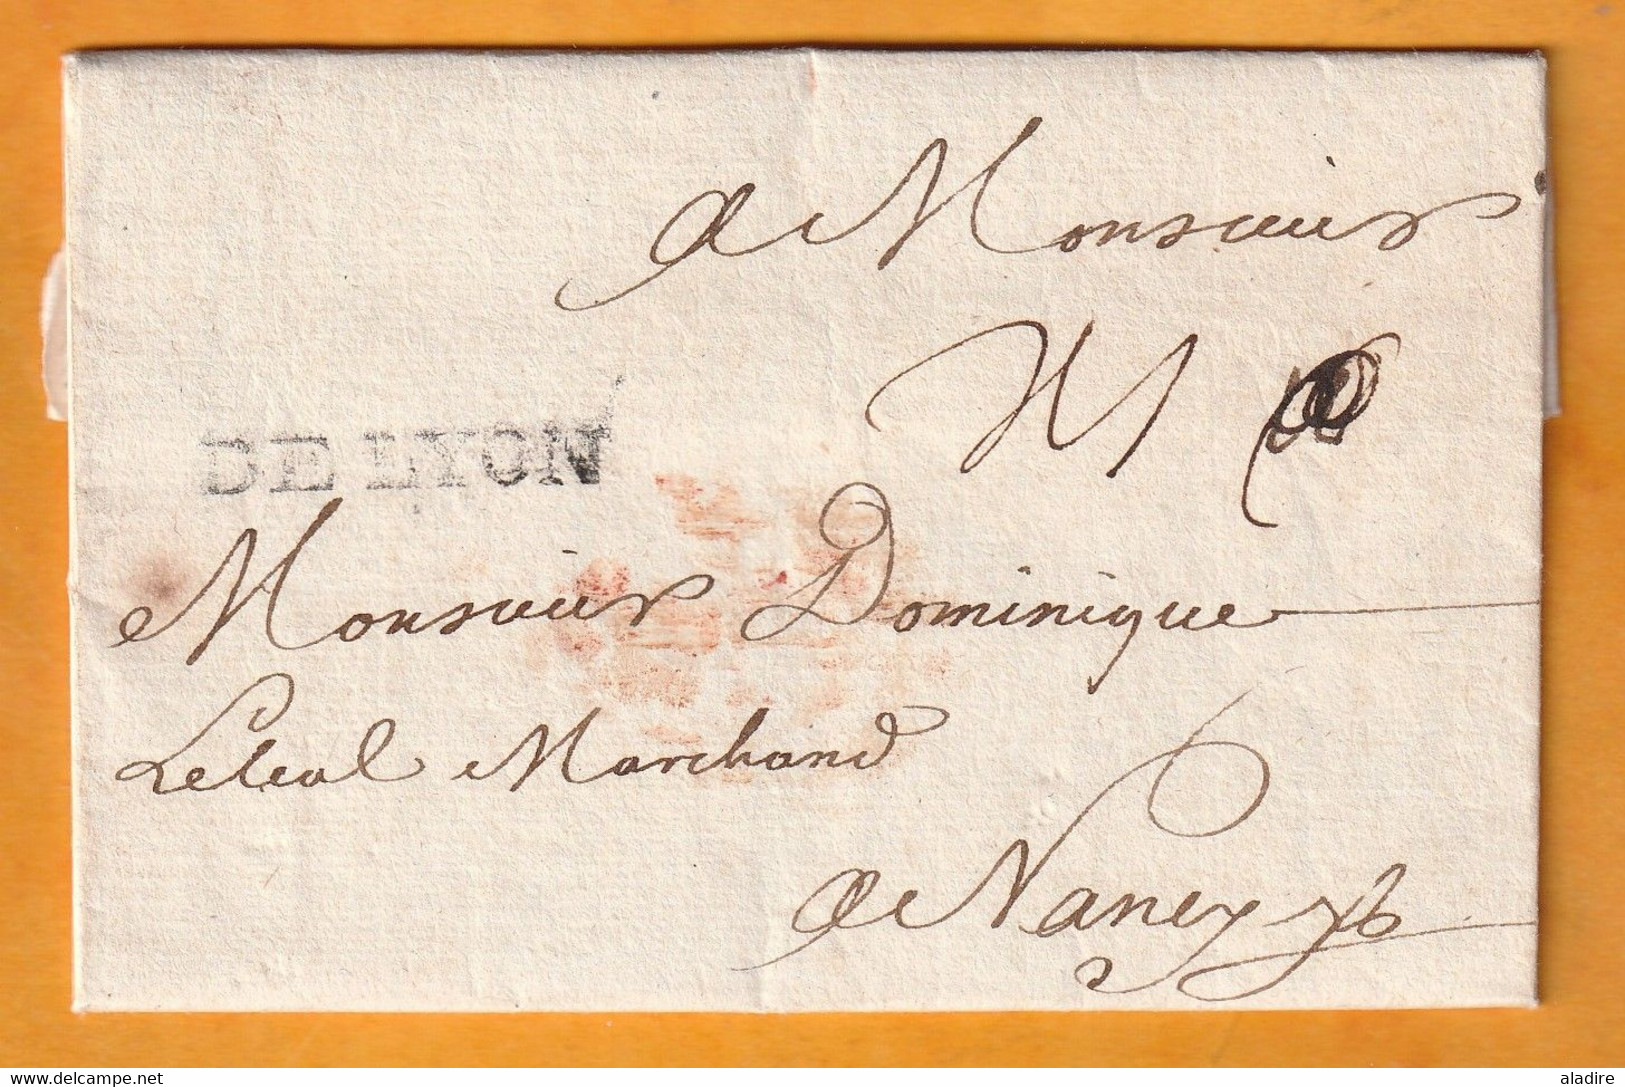 A Monsieur
DE LYON
Monsieur Dominique
Leleal Marchand
A Nancy
delcampe.net
aladire